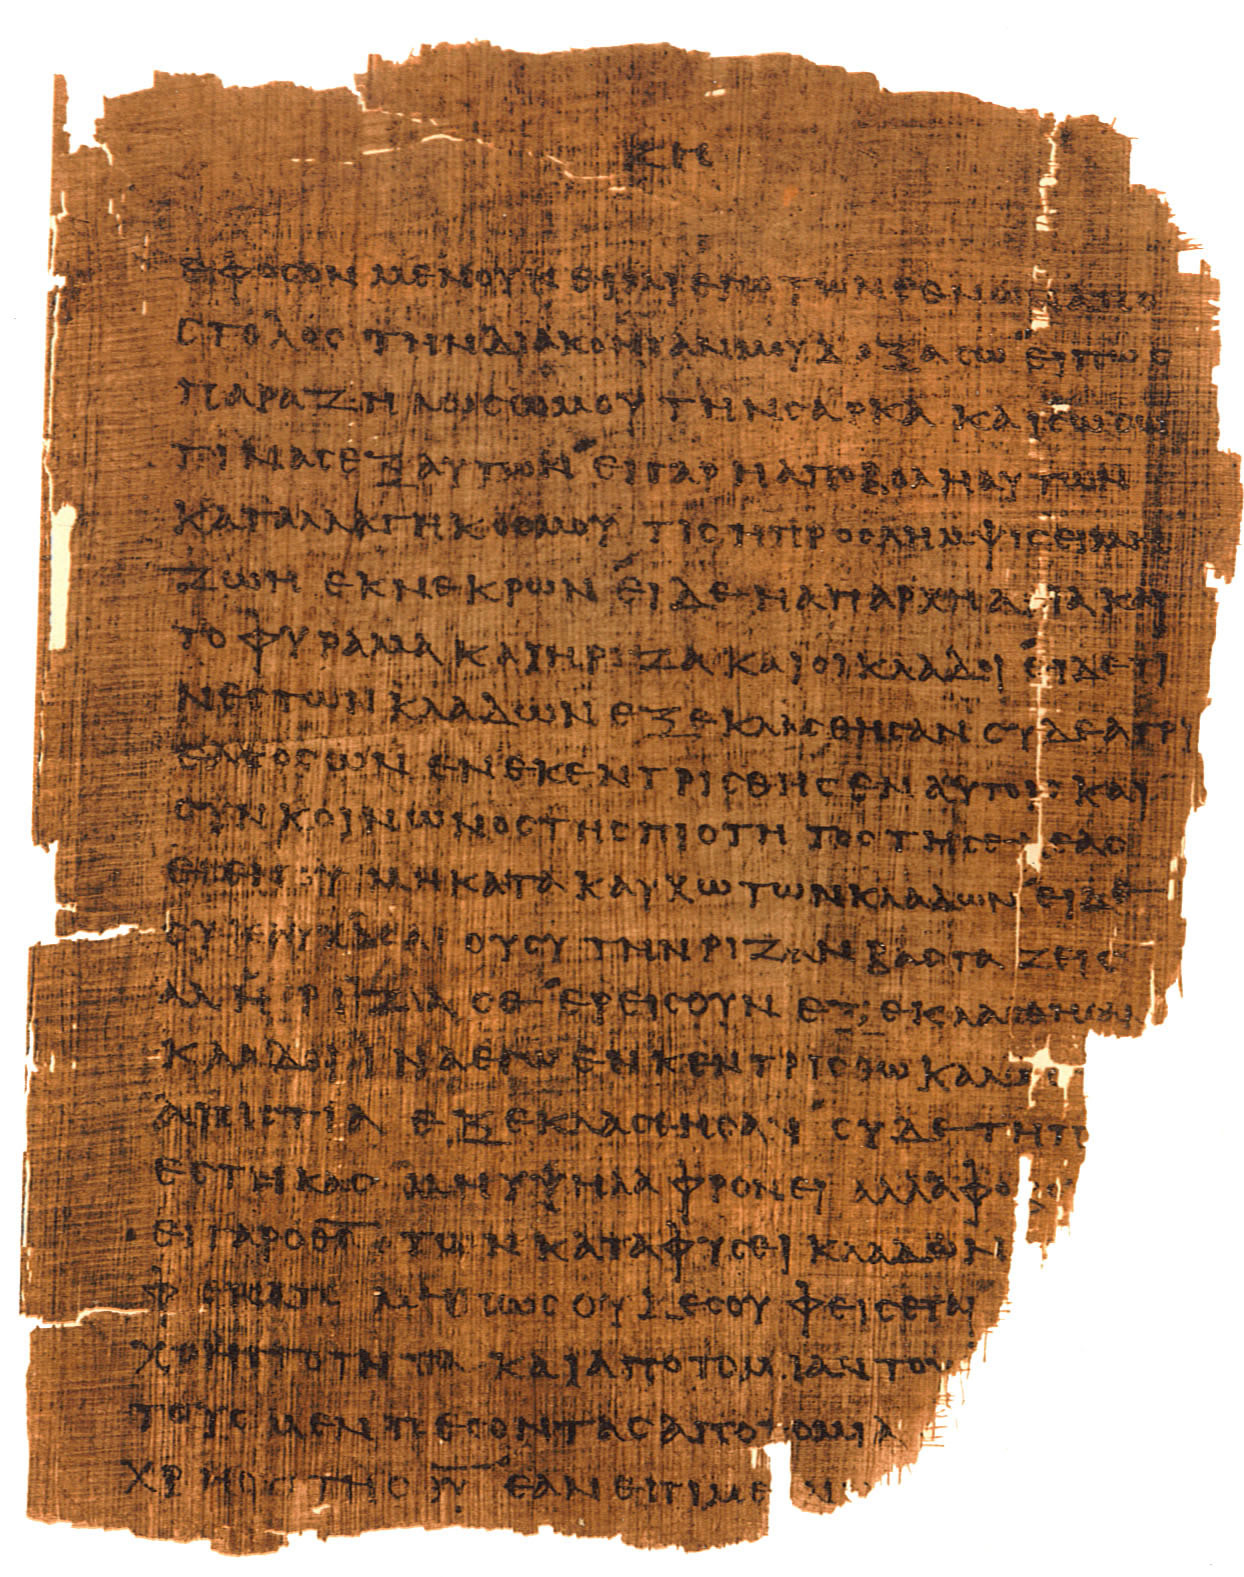 ΚΗ
ΕΦΟCΟΝ ΜΕΝ ΟΥΝ ΕΙΜΙ ΕΓΩ ΤΩΝ ΕΘΝΩΝ ΑΠΟ
CΤΟΛΟC ΤΗΝ ΔΙΑΚΟΝΙΑΝ ΜΟΥ ΔΟΞΑCΩ ΕΙ ΠΩC
ΠΑΡΑΖΗΛΩCΩ ΜΟΥ ΤΗΝ CΑΡΚΑ ΚΑΙ CΩCΩ
ΤΙΝΑC ΕΞ ΑΥΤΩΝ ΕΙ ΓΑΡ Η ΑΠΟΒΟΛΗ ΑΥΤΩΝ
ΚΑΤΑΛΛΑΓΗ ΚΟCΜΟΥ ΤΙC Η ΠΡΟCΛΗΜΨΙC ΕΙ ΜΗ
ΖΩΗ ΕΚ ΝΕΚΡΩΝ ΕΙ ΔΕ Η ΑΠΑΡΧΗ ΑΓΙΑ ΚΑΙ
ΤΟ ΦΥΡΑΜΑ ΚΑΙ Η ΡΙΖΑ ΚΑΙ ΟΙ ΚΛΑΔΟΙ ΕΙ ΔΕ ΤΙ
ΝΕC ΤΩΝ ΚΛΑΔΩΝ ΕΞΕΚΛΑCΘΗCΑΝ CΥ ΔΕ ΑΓΡΙ
ΕΛΑΙΟC ΩΝ ΕΝΕΚΕΝΤΡΙCΘΗC ΕΝ ΑΥΤΟΙC ΚΑΙ
CΥΝΚΟΙΝΩΝΟC ΤΗC ΠΙΟΤΗΤΟC ΤΗC ΕΛΑΙΑC
ΕΓΕΝΟΥ ΜΗ ΚΑΤΑΚΑΥΧΩ ΤΩΝ ΚΛΑΔΩΝ ΕΙ ΔΕ
CΥ ΚΑΥΧΑCΑΙ ΟΥ CΥ ΤΗΝ ΡΙΖΑΝ ΒΑCΤΑΖΕΙC
ΑΛΛ Η ΡΙΖΑ CΕ ΕΡΕΙC ΟΥΝ ΕΞΕΚΛΑCΘΗCΑΝ
ΚΛΑΔΟΙ ΙΝΑ ΕΓΩ ΕΝΚΕΝΤΡΙCΘΩ ΚΑΛΩC
ΑΠΙCΤΙΑ ΕΞΕΚΛΑCΘΗCΑΝ CΥ ΔΕ ΤΗ Π
ΕCΤΗΚΑC ΜΗ ΥΨΗΛΑ ΦΡΟΝΕΙ ΑΛΛΑ ΦΟΒΟΥ
ΕΙ ΓΑΡ Ο ΘC ΤΩΝ ΚΑΤΑ ΦΥCΕΙ ΚΛΑΔΩΝ
ΜΗ ΠΩC ΟΥΔΕ CΟΥ ΦΕΙCΕΤΑΙ
ΧΡΗCΤΟΤΗΤΑ ΚΑΙ ΑΠΟΤΟΜΙΑΝ ΤΟΥ
ΤΟΥC ΜΕΝ ΠΕCΟΝΤΑC ΑΠΟΤΟΜΙΑ
ΧΡΗCΤΗC ΕΑΝ ΕΠΙΜΕΙΝ